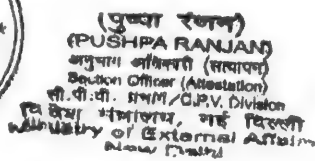 (पुष्पा रंजन)
(PUSHPA RANJAN)
अनुभाग अधिकारी (सत्यापन)
Section Officer (Attestation)
सी.पी.वी. प्रभाग/C.P.V. Division
विदेश मंत्रालय, नई दिल्ली
Ministry of External Affairs
New Delhi